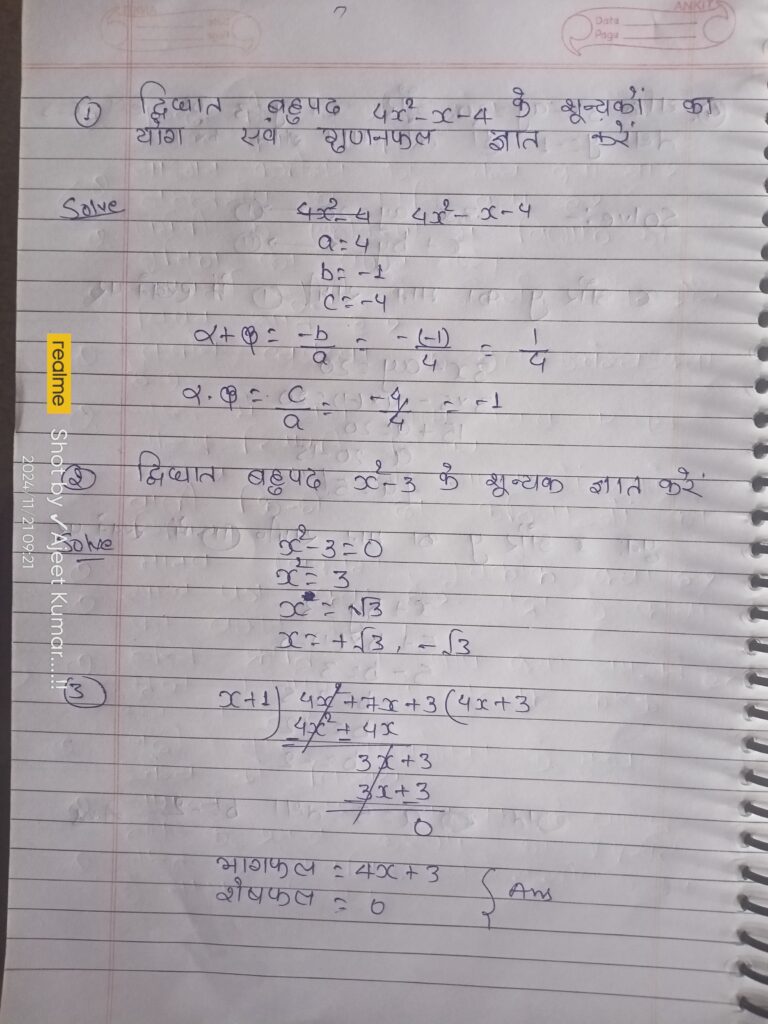 ANKIT
Data
Page
① द्विघात बहुपद 4x²-x-4 के शून्यकों का
योग एवं गुणनफल ज्ञात करें
Solve 4x²-4 4x²-x-4
a=4
b=-1
c=-4
α+β = -b/a = -(-1)/4 = 1/4
α.β = c/a = -4/4 = -1
② द्विघात बहुपद x²-3 के शून्यक ज्ञात करें
Solve x²-3=0
x²=3
x = √3
x=+√3, -√3
③ x+1) 4x²+7x+3 (4x+3
4x²+4x
3x+3
3x+3
0
भागफल = 4x+3
शेषफल = 0 } Ans
realme Shot by ✓Ajeet Kumar....!!
2024/11/21 09:21